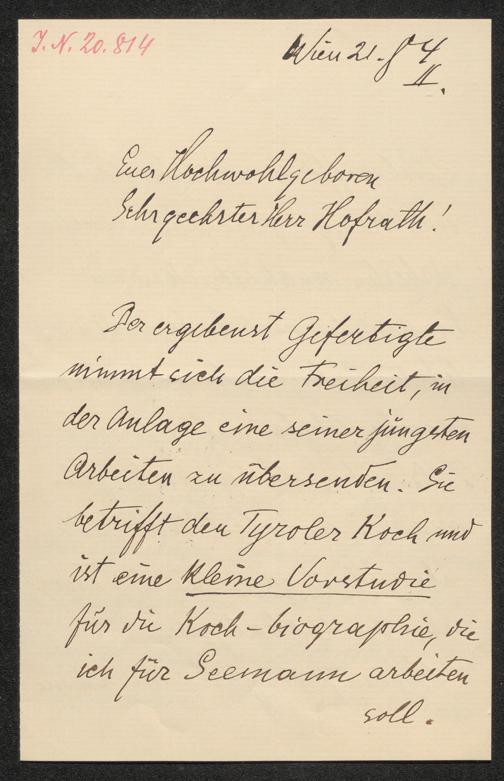 J. N. 20.814
Wien 21. 84
II.
Euer Hochwohlgeboren
Sehrgeehrter Herr Hofrath!
Der ergebenst Gefertigte
nimmt sich die Freiheit, in
der Anlage eine seiner jüngsten
Arbeiten zu übersenden. Sie
betrifft den Tyroler Koch und
ist eine kleine Vorstudie
für die Koch-biographie, die
ich für Seemann arbeiten
soll.